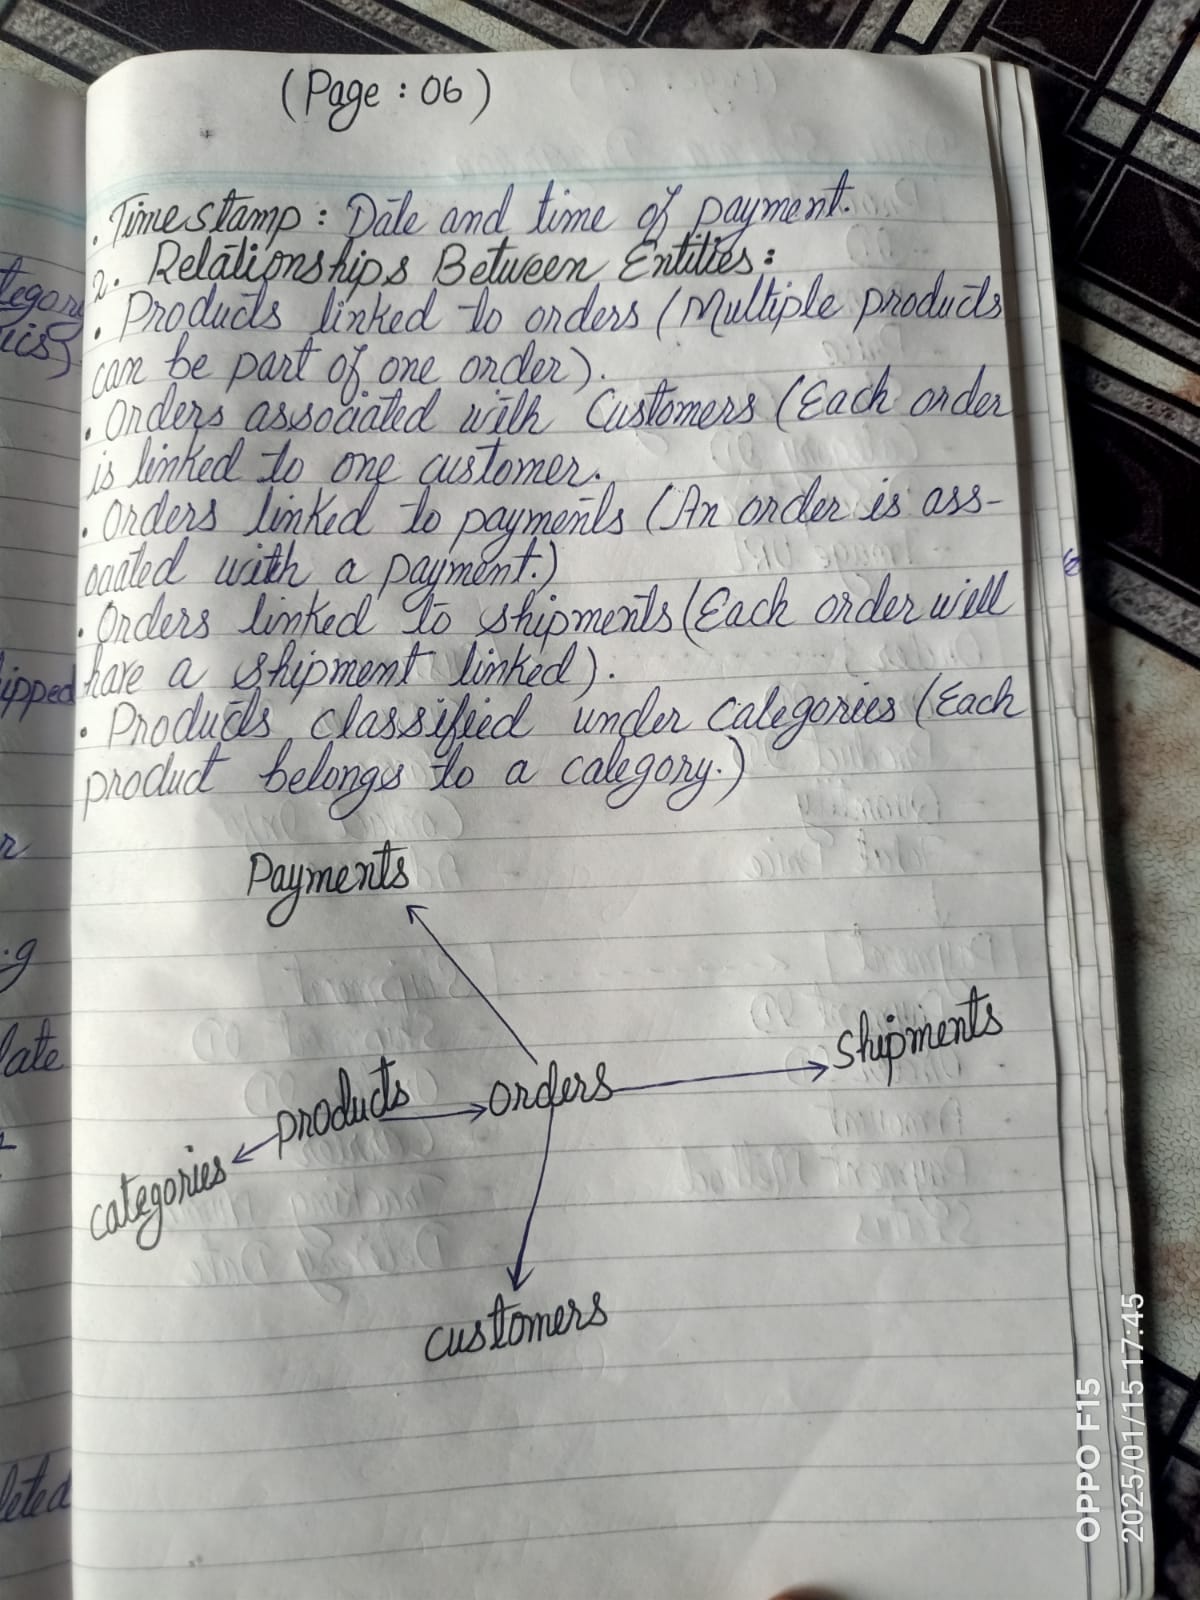 (Page : 06)
. Timestamp : Date and time of payment.
2. Relationships Between Entities :
. Products linked to orders (Multiple products
can be part of one order).
. Orders associated with Customers (Each order
is linked to one customer.
. Orders linked to payments (An order is ass-
ociated with a payment.)
. Orders linked to shipments (Each order will
have a shipment linked).
. Products classified under Categories (Each
product belongs to a category.)
Payments
shipments
products
orders
categories
customers
ipped
late
OPPO F15
2025/01/15 17:45